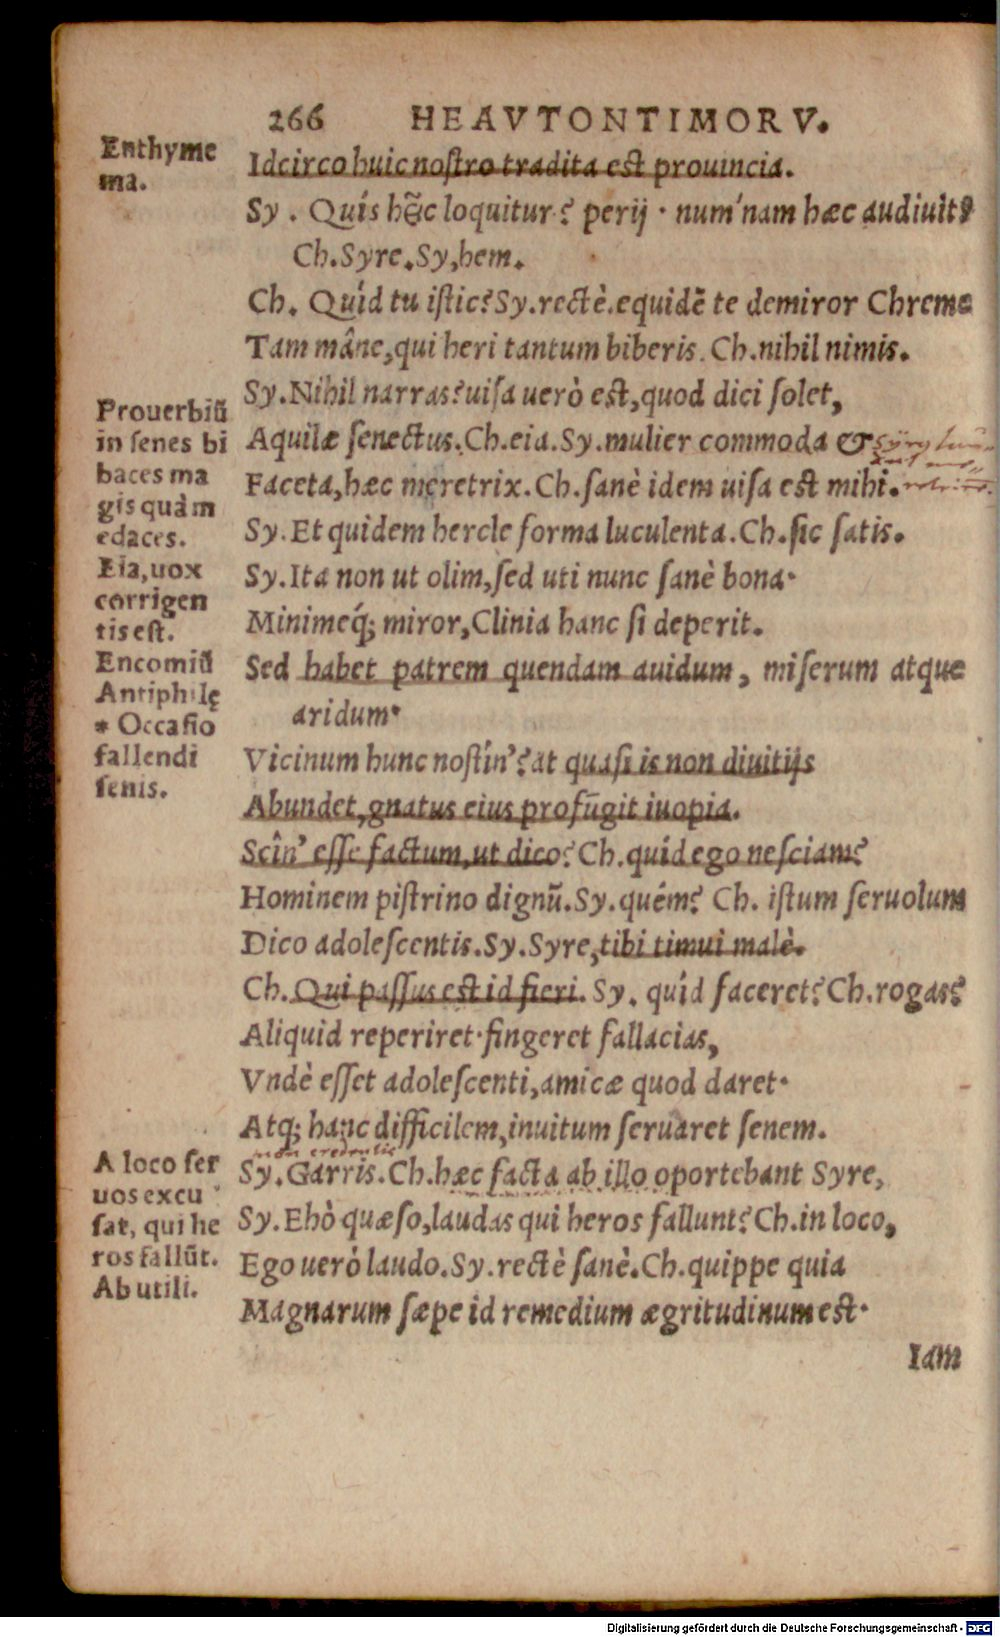 266 HEAVTONTIMORV.
Enthyme
ma.
Idcirco huic nostro tradita est prouincia.
Sy . Quís hęc loquitur? perij · num'nam hæc audiuit?
Ch. Syre. Sy, hem.
Ch. Quíd tu istic? Sy. rectè. equidē te demiror Chreme
Tam mâne, qui heri tantum biberis. Ch. nihil nimis.
Sy. Nihil narras? uisa uerò est, quod dici solet,
Prouerbiū
in senes bi
baces ma
gis quàm
edaces.
Eia, uox
corrigen
tis est.
Encomiū
Antiphilę
* Occasio
fallendi
senis.
Aquilæ senectus. Ch. eia. Sy. mulier commoda &
Faceta, hæc meretrix. Ch. sanè idem uisa est mihi.
Sy. Et quidem hercle forma luculenta. Ch. sic satis.
Sy. Ita non ut olim, sed uti nunc sanè bona·
Minimeq́; miror, Clinia hanc si deperit.
Sed habet patrem quendam auidum, miserum atque
aridum·
Vicinum hunc nostín'? at quasi is non diuitijs
Abundet, gnatus eius profūgit inopia.
Scîn' esse factum, ut dico? Ch. quíd ego nesciam?
Hominem pistrino dignū. Sy. quém? Ch. istum seruolum
Dico adolescentis. Sy. Syre, tibi timui malè.
Ch. Qui passus est id fieri. Sy. quíd faceret? Ch. rogas?
Aliquid reperiret· fingeret fallacias,
Vndè esset adolescenti, amicæ quod daret·
Atq; hanc difficilem, inuitum seruaret senem.
A loco ser
uos excu
sat, qui he
ros fallūt.
Ab utili.
Sy. Garris. Ch. hæc facta ab illo oportebant Syre,
Sy. Ehò quæso, laudas qui heros fallunt? Ch. in loco,
Ego uerò laudo. Sy. rectè sanè. Ch. quippe quia
Magnarum sæpe id remedium ægritudinum est·
Iam
Digitalisierung gefördert durch die Deutsche Forschungsgemeinschaft - DFG